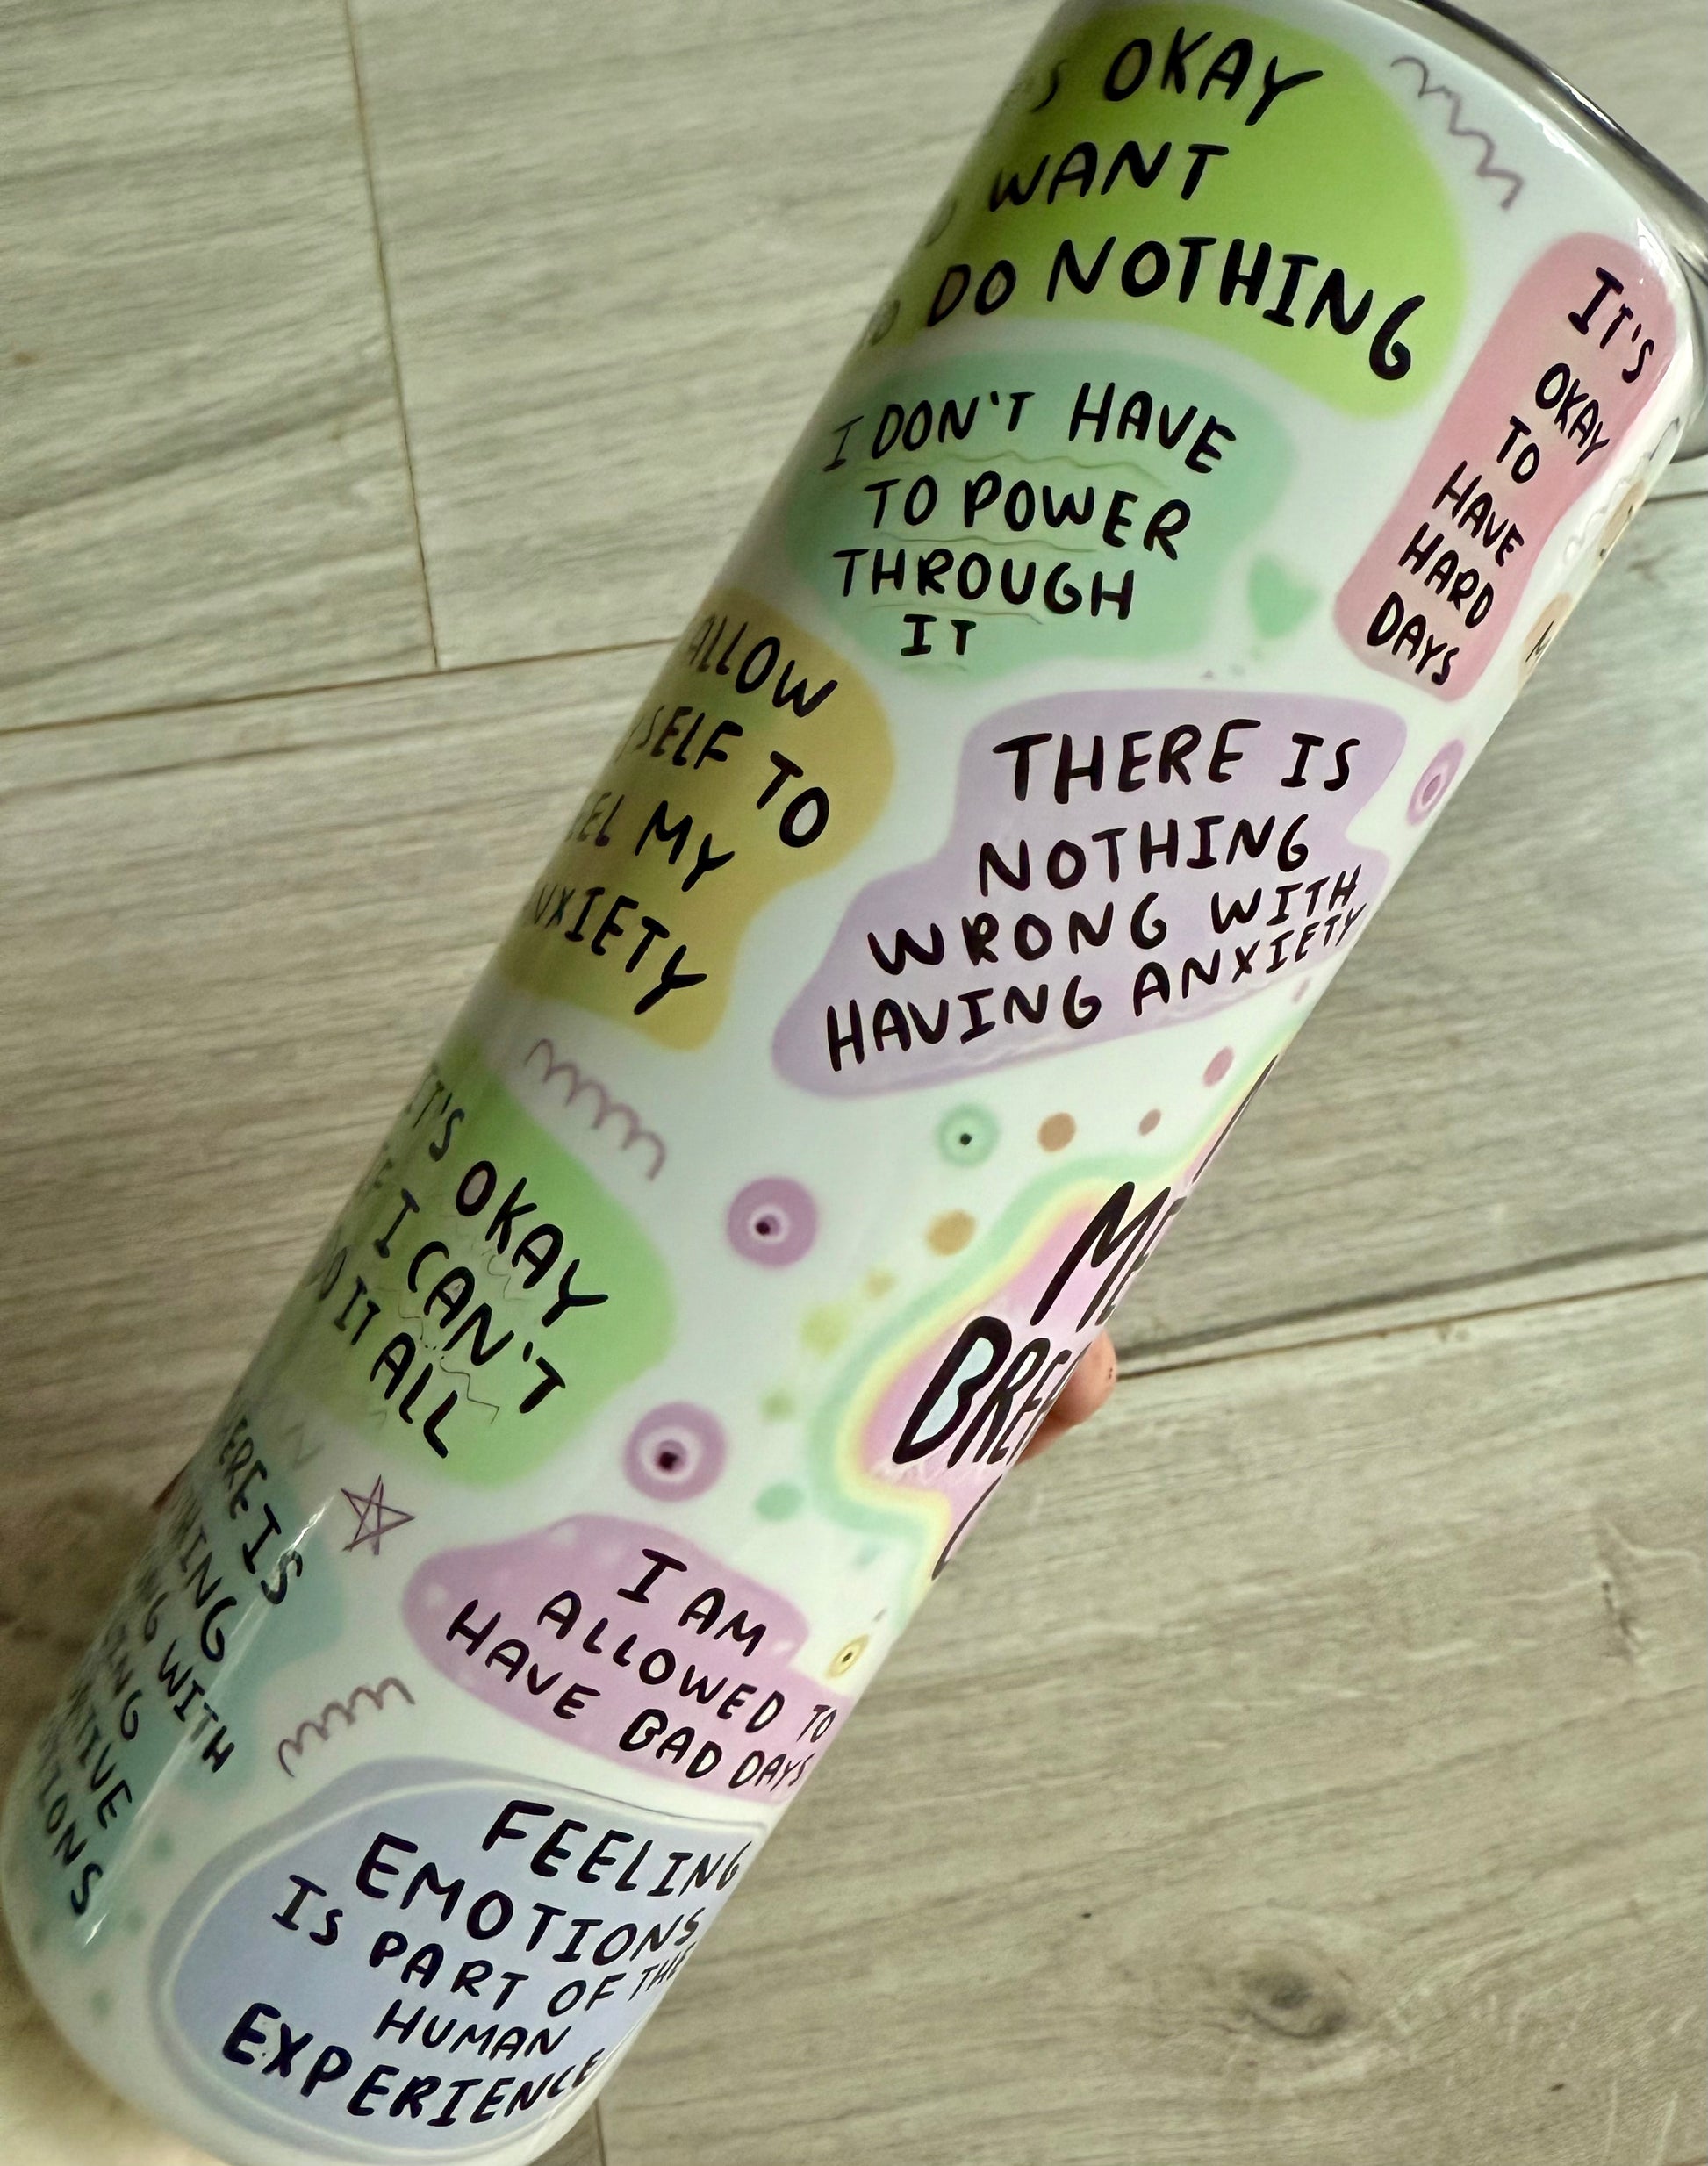 OKAY
WANT
DO NOTHING
IT'S
OKAY
TO
HAVE
HARD
DAYS
I DON'T HAVE
TO POWER
THROUGH
IT
ALLOW
TO
MY
THERE IS
NOTHING
WRONG WITH
HAVING ANXIETY
IT'S OKAY
I CAN'T
IT ALL
IS
WITH
I AM
ALLOWED TO
HAVE BAD DAYS
FEELING
EMOTIONS
IS PART OF THE
HUMAN
EXPERIENCE